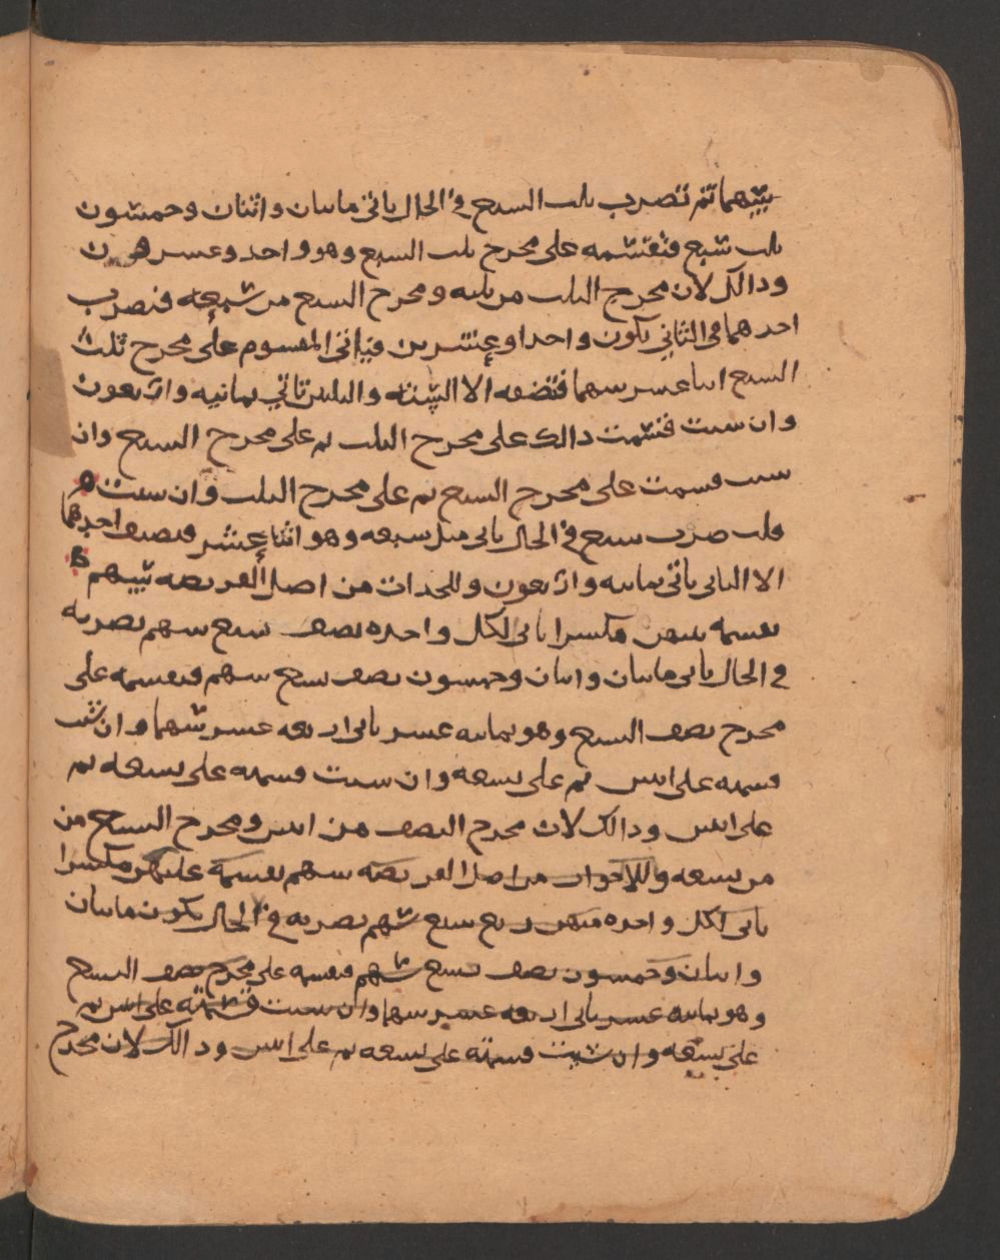 بينهما ثم تضرب ثلث السبع في الحال ياتي ماىتان واثنان وخمسون
ثلث سبع فتقسمه على مخرج ثلث السبع وهو واحد وعشرون
وذالك لان مخرج الثلث من ثلثه ومخرج السبع من سبعه فتضرب
احدهما في الثاني يكون واحدا وعشرين فياتي المقسوم على مخرج ثلث
السبع اثنا عشر سهما فتضفه الا الستة والثلثين تاتي ثمانيه واربعون
وان شىت قسمت ذالك على مخرج الثلث ثم على مخرج السبع وان
شىت قسمت على مخرج السبع ثم على مخرج الثلث وان شىت
قلت ضرب سبع في الحال ياتي مثل سبعه وهو اثنا عشر فنضيف احدهما
الا الثاني ياتي ثمانيه واربعون وللجدات من اصل الفريضه سهم
نقسمه بينهن منكسرا ياتي لكل واحده نصف سبع سهم نضربه
في الحال ياتي ماىتان واثنان وخمسون نصف سبع سهم فنقسمه على
مخرج نصف السبع وهو ثمانيه عشر ياتي اربعه عشر سهما وان شىت
قسمته على اثنين ثم على تسعه وان شىت قسمته على تسعه ثم
على اثنين وذالك لان مخرج النصف من اثنين ومخرج السبع من
من تسعه وللاخوات من اصل الفريضه سهم نقسمه عليهن منكسرا
ياتي لكل واحده منهن ربع سبع سهم نضربه في الحال يكون ماىتان
واثنان وخمسون نصف تسع سهم فنقسمه على مخرج نصف السبع
وهو ثمانيه عشر ياتي اربعه عشر سهما وان شىت قسمته على اثنين ثم
على تسعه وان شىت قسمته على تسعه ثم على اثنين وذالك لان مخرج